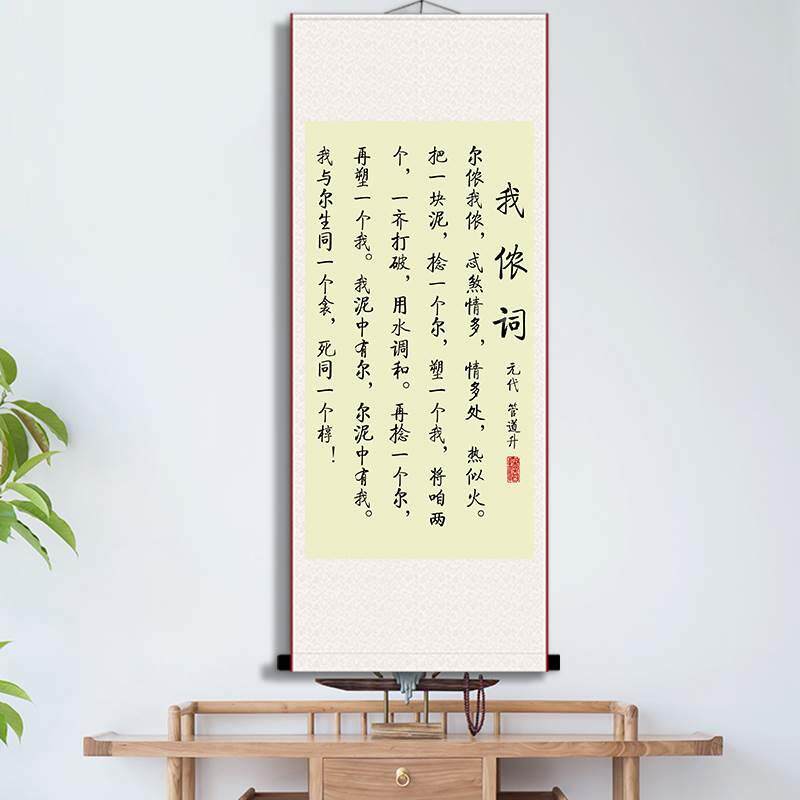 我侬词
元代 管道升
尔侬我侬，忒煞情多，情多处，热似火。
把一块泥，捻一个尔，塑一个我，将咱两
个，一齐打破，用水调和。再捻一个尔，
再塑一个我。我泥中有尔，尔泥中有我。
我与尔生同一个衾，死同一个椁！